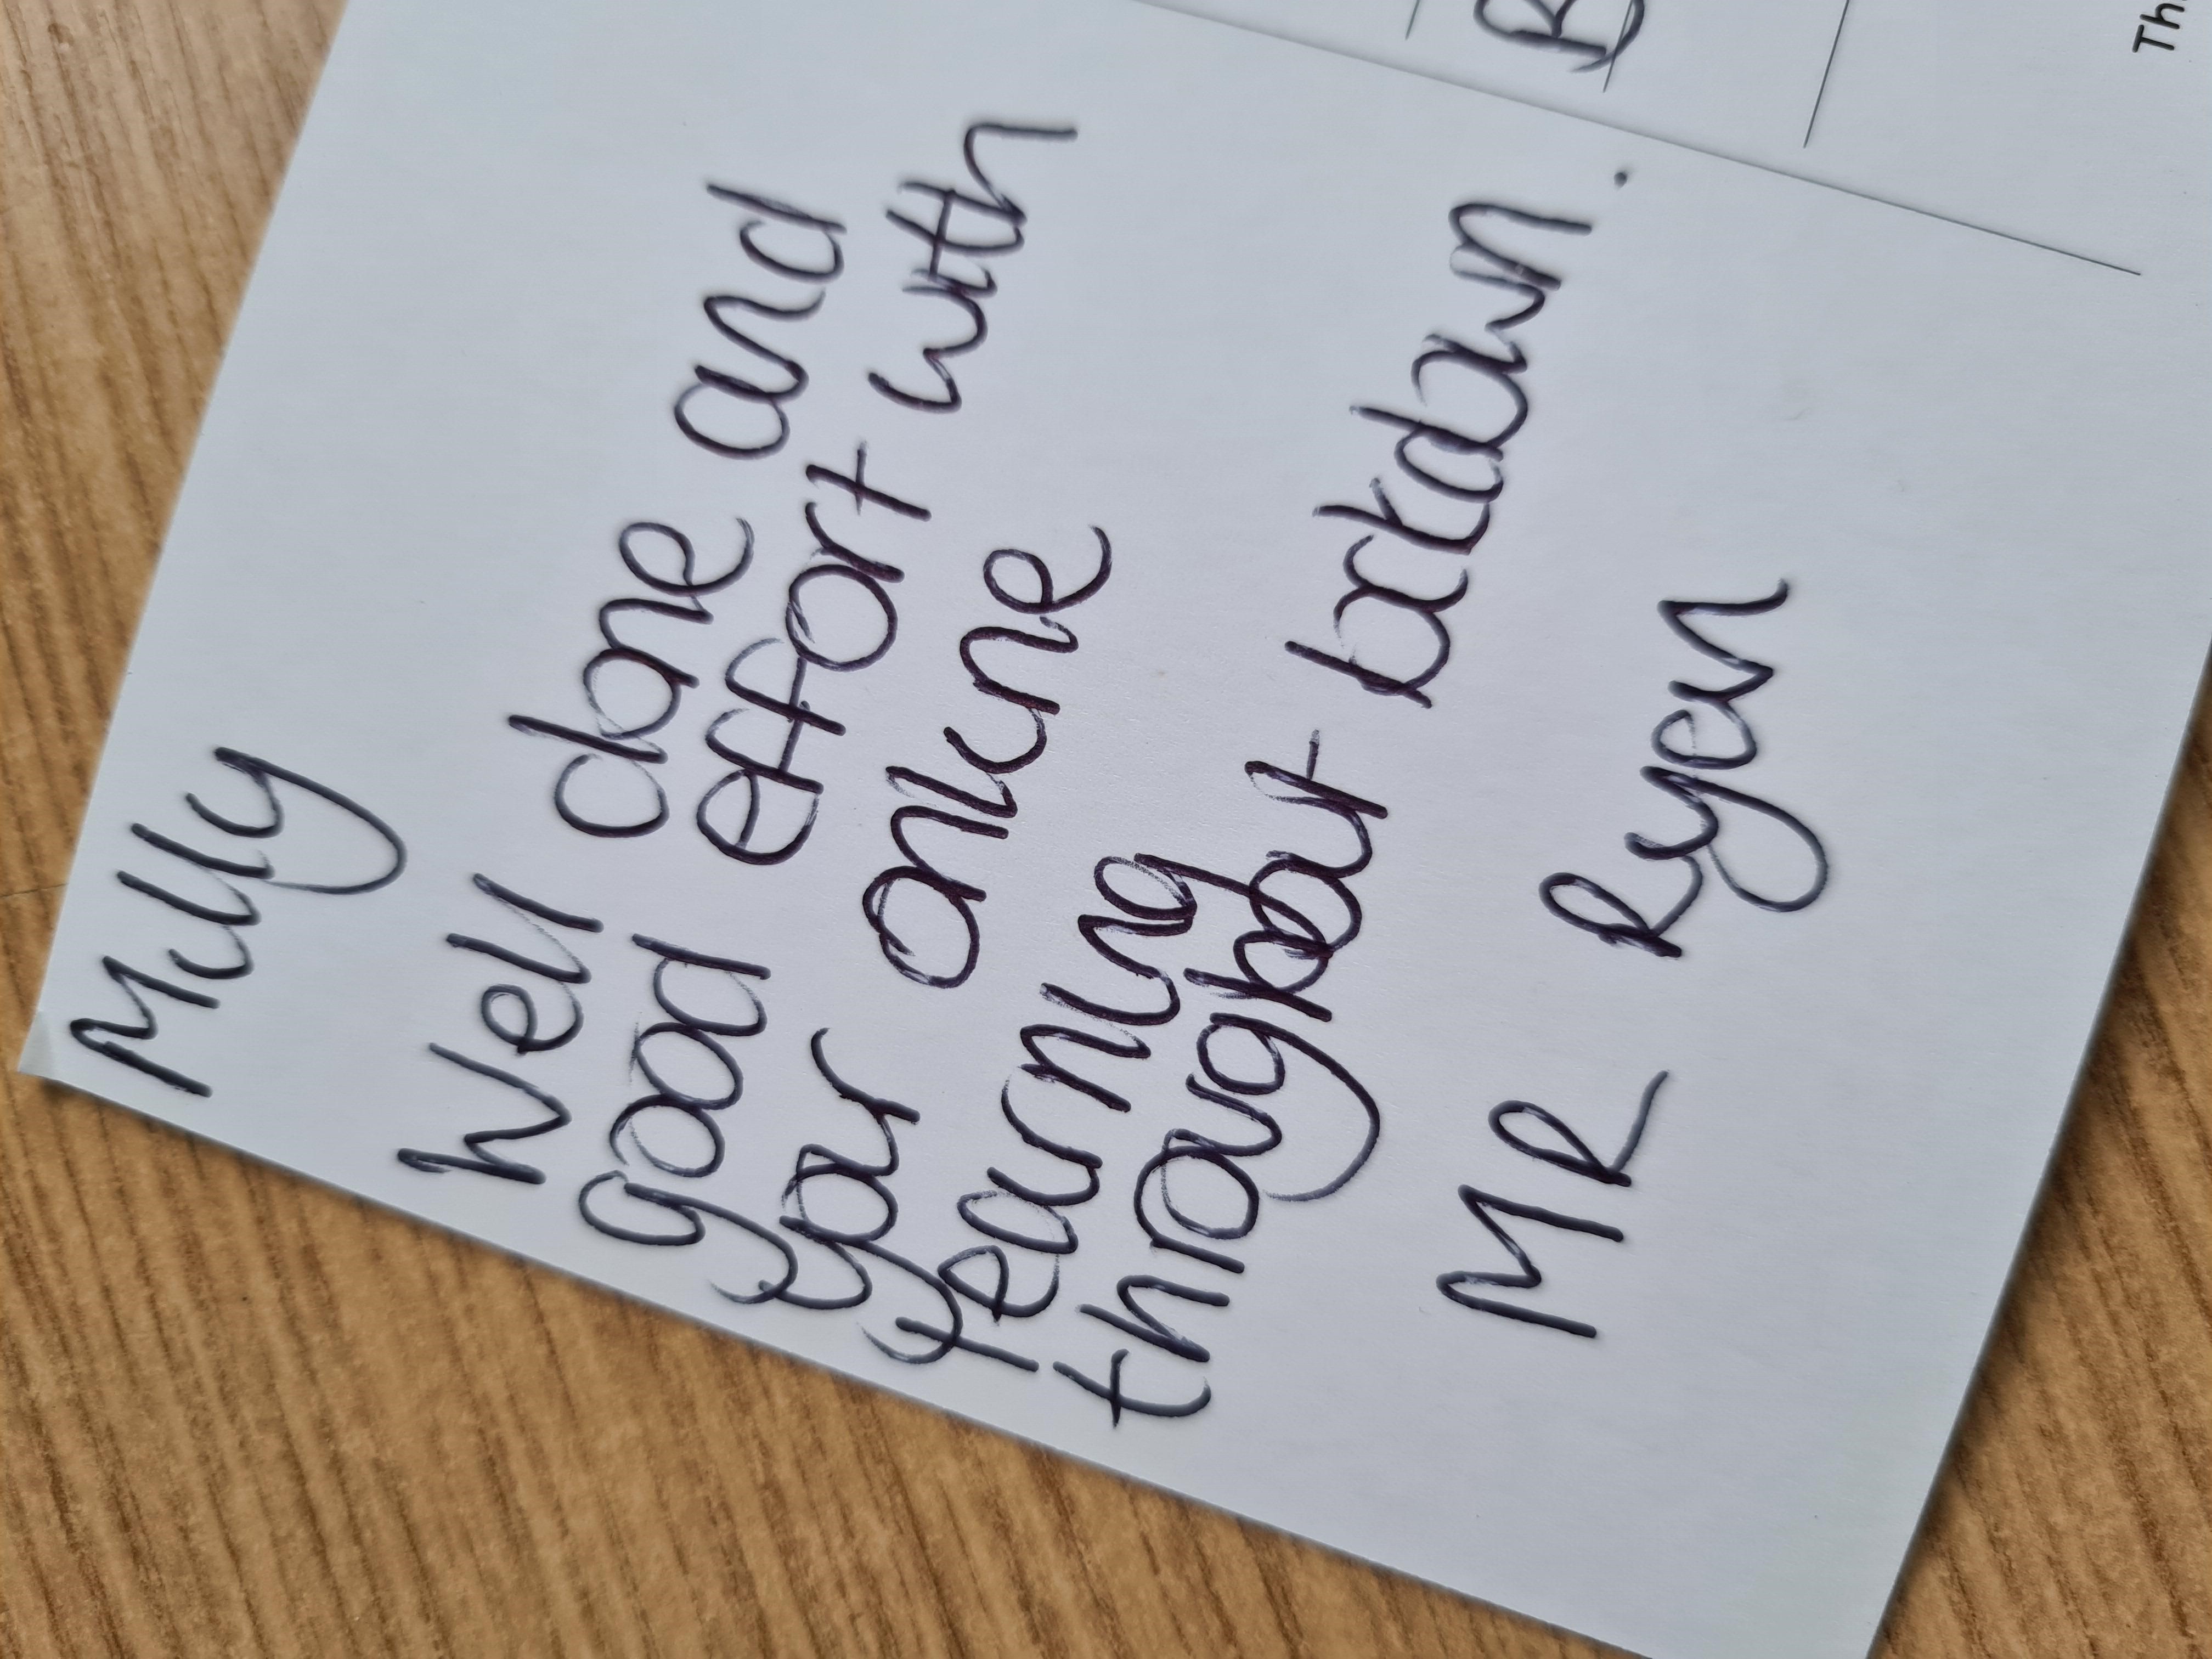 Milly
Well done and
good effort with
your online
learning
throughout lockdown.
MR Ryan
Th